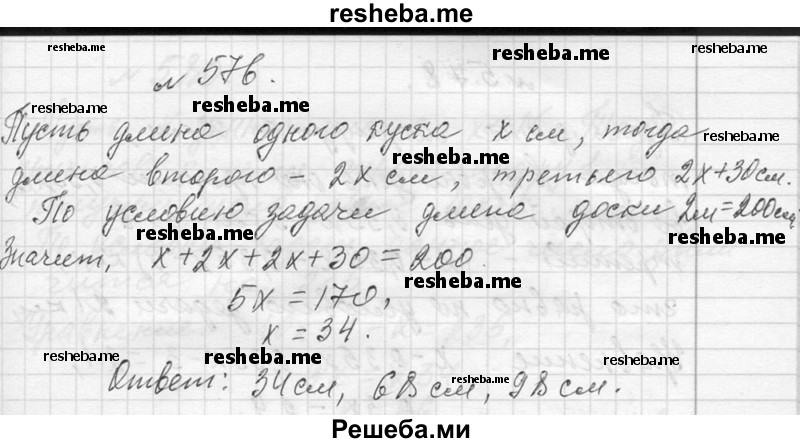 resheba.me
resheba.me resheba.me
№ 576.
resheba.me resheba.me
Пусть длина одного куска x см, тогда
resheba.me resheba.me
длина второго – 2x см, третьего 2x+30см.
По условию задачи длина доски 2м=200см
resheba.me resheba.me
Значит, x+2x+2x+30=200.
resheba.me
5x=170,
x=34.
resheba.me resheba.me resheba.me
Ответ: 34см, 68см, 98см.
resheba.me
Решеба.ми